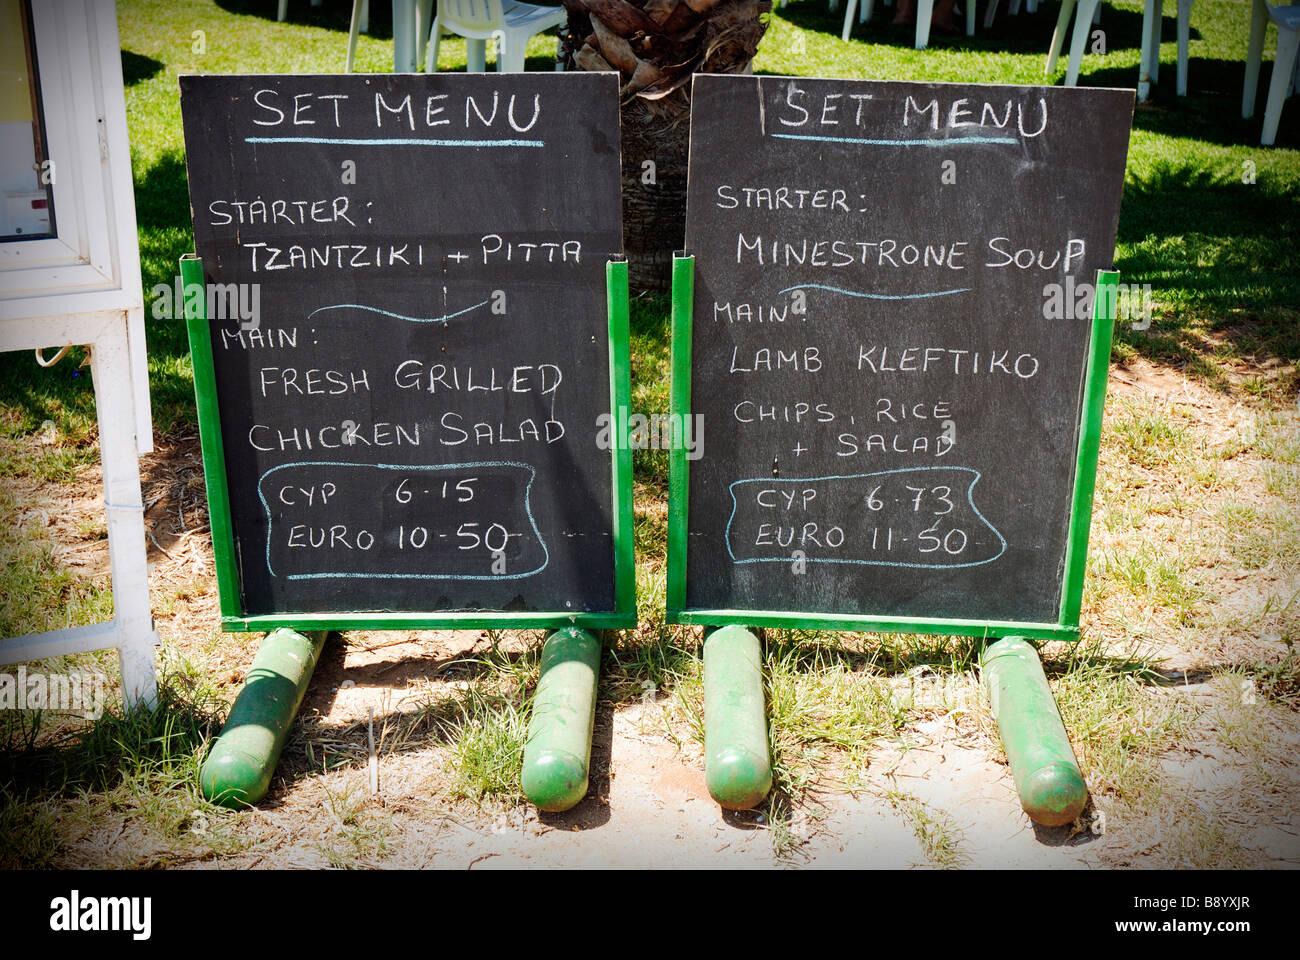 SET MENU
STARTER:
TZANTZIKI + PITTA
MAIN:
FRESH GRILLED
CHICKEN SALAD
CYP 6-15
EURO 10-50
SET MENU
STARTER:
MINESTRONE SOUP
MAIN:
LAMB KLEFTIKO
CHIPS, RICE
+ SALAD
CYP 6-73
EURO 11-50
alamy
Image ID: B8YXJR
www.alamy.com